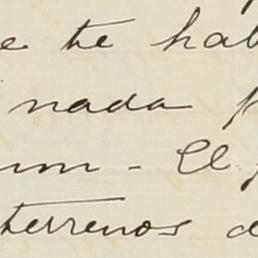 te hab
nada
- El
terrenos d